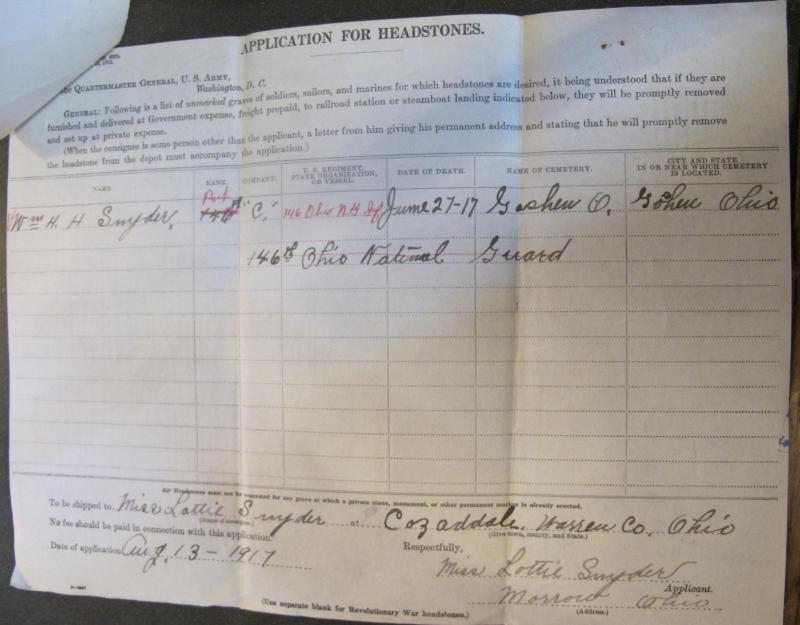 APPLICATION FOR HEADSTONES.
QUARTERMASTER GENERAL, U. S. ARMY,
Washington, D. C.
GENERAL: Following is a list of unmarked graves of soldiers, sailors, and marines for which headstones are desired, it being understood that if they are
furnished and delivered at Government expense, freight prepaid, to railroad station or steamboat landing indicated below, they will be promptly removed
and set up at private expense.
(When the consignee is some person other than the applicant, a letter from him giving his permanent address and stating that he will promptly remove
the headstone from the depot must accompany the application.)
NAME. RANK. COMPANY. U. S. REGIMENT, STATE ORGANIZATION, OR VESSEL. DATE OF DEATH. NAME OF CEMETERY. CITY AND STATE IN OR NEAR WHICH CEMETERY IS LOCATED.
Wm H. H Snyder. "C," 146 Ohio N.G. Inf June 27-17 Goshen O. Gohen Ohio
146th Ohio National Guard
Headstones must not be requested for any grave at which a private stone, monument, or other permanent marker is already erected.
To be shipped to Miss Lottie Snyder at Cozaddale, Warren Co, Ohio
(Name of consignee.) (Give town, county, and State.)
No fee should be paid in connection with this application.
Date of application Aug. 13 - 1917 Respectfully,
Miss Lottie Snyder
Applicant.
Morrow Ohio
(Address.)
(Use separate blank for Revolutionary War headstones.)